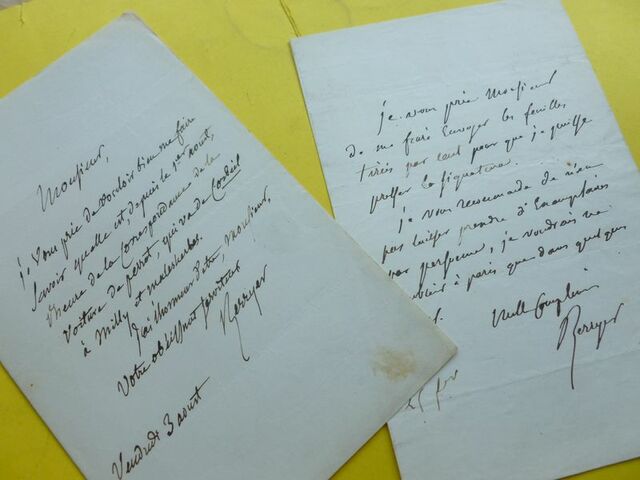 Monsieur,
je vous prie de vouloir bien me faire
savoir quelle est depuis le 1er aoust,
l'heure de la Correspondance de la
Voiture de perrot, qui va de Corbeil
à Milly et malesherbes.
J'ai l'honneur d'etre, Monsieur,
Votre obéissant serviteur
Berryer
Vendredi 3 aoust
je vous prie Monsieur
de me faire Envoyer les feuilles
tirées par cent pour que je puisse
presser la signature.
je vous recommande de n'en
pas laisser prendre d'Exemplaires
par personne, je voudrais ne
publier à paris que dans quelques
mille Complimens
Berryer